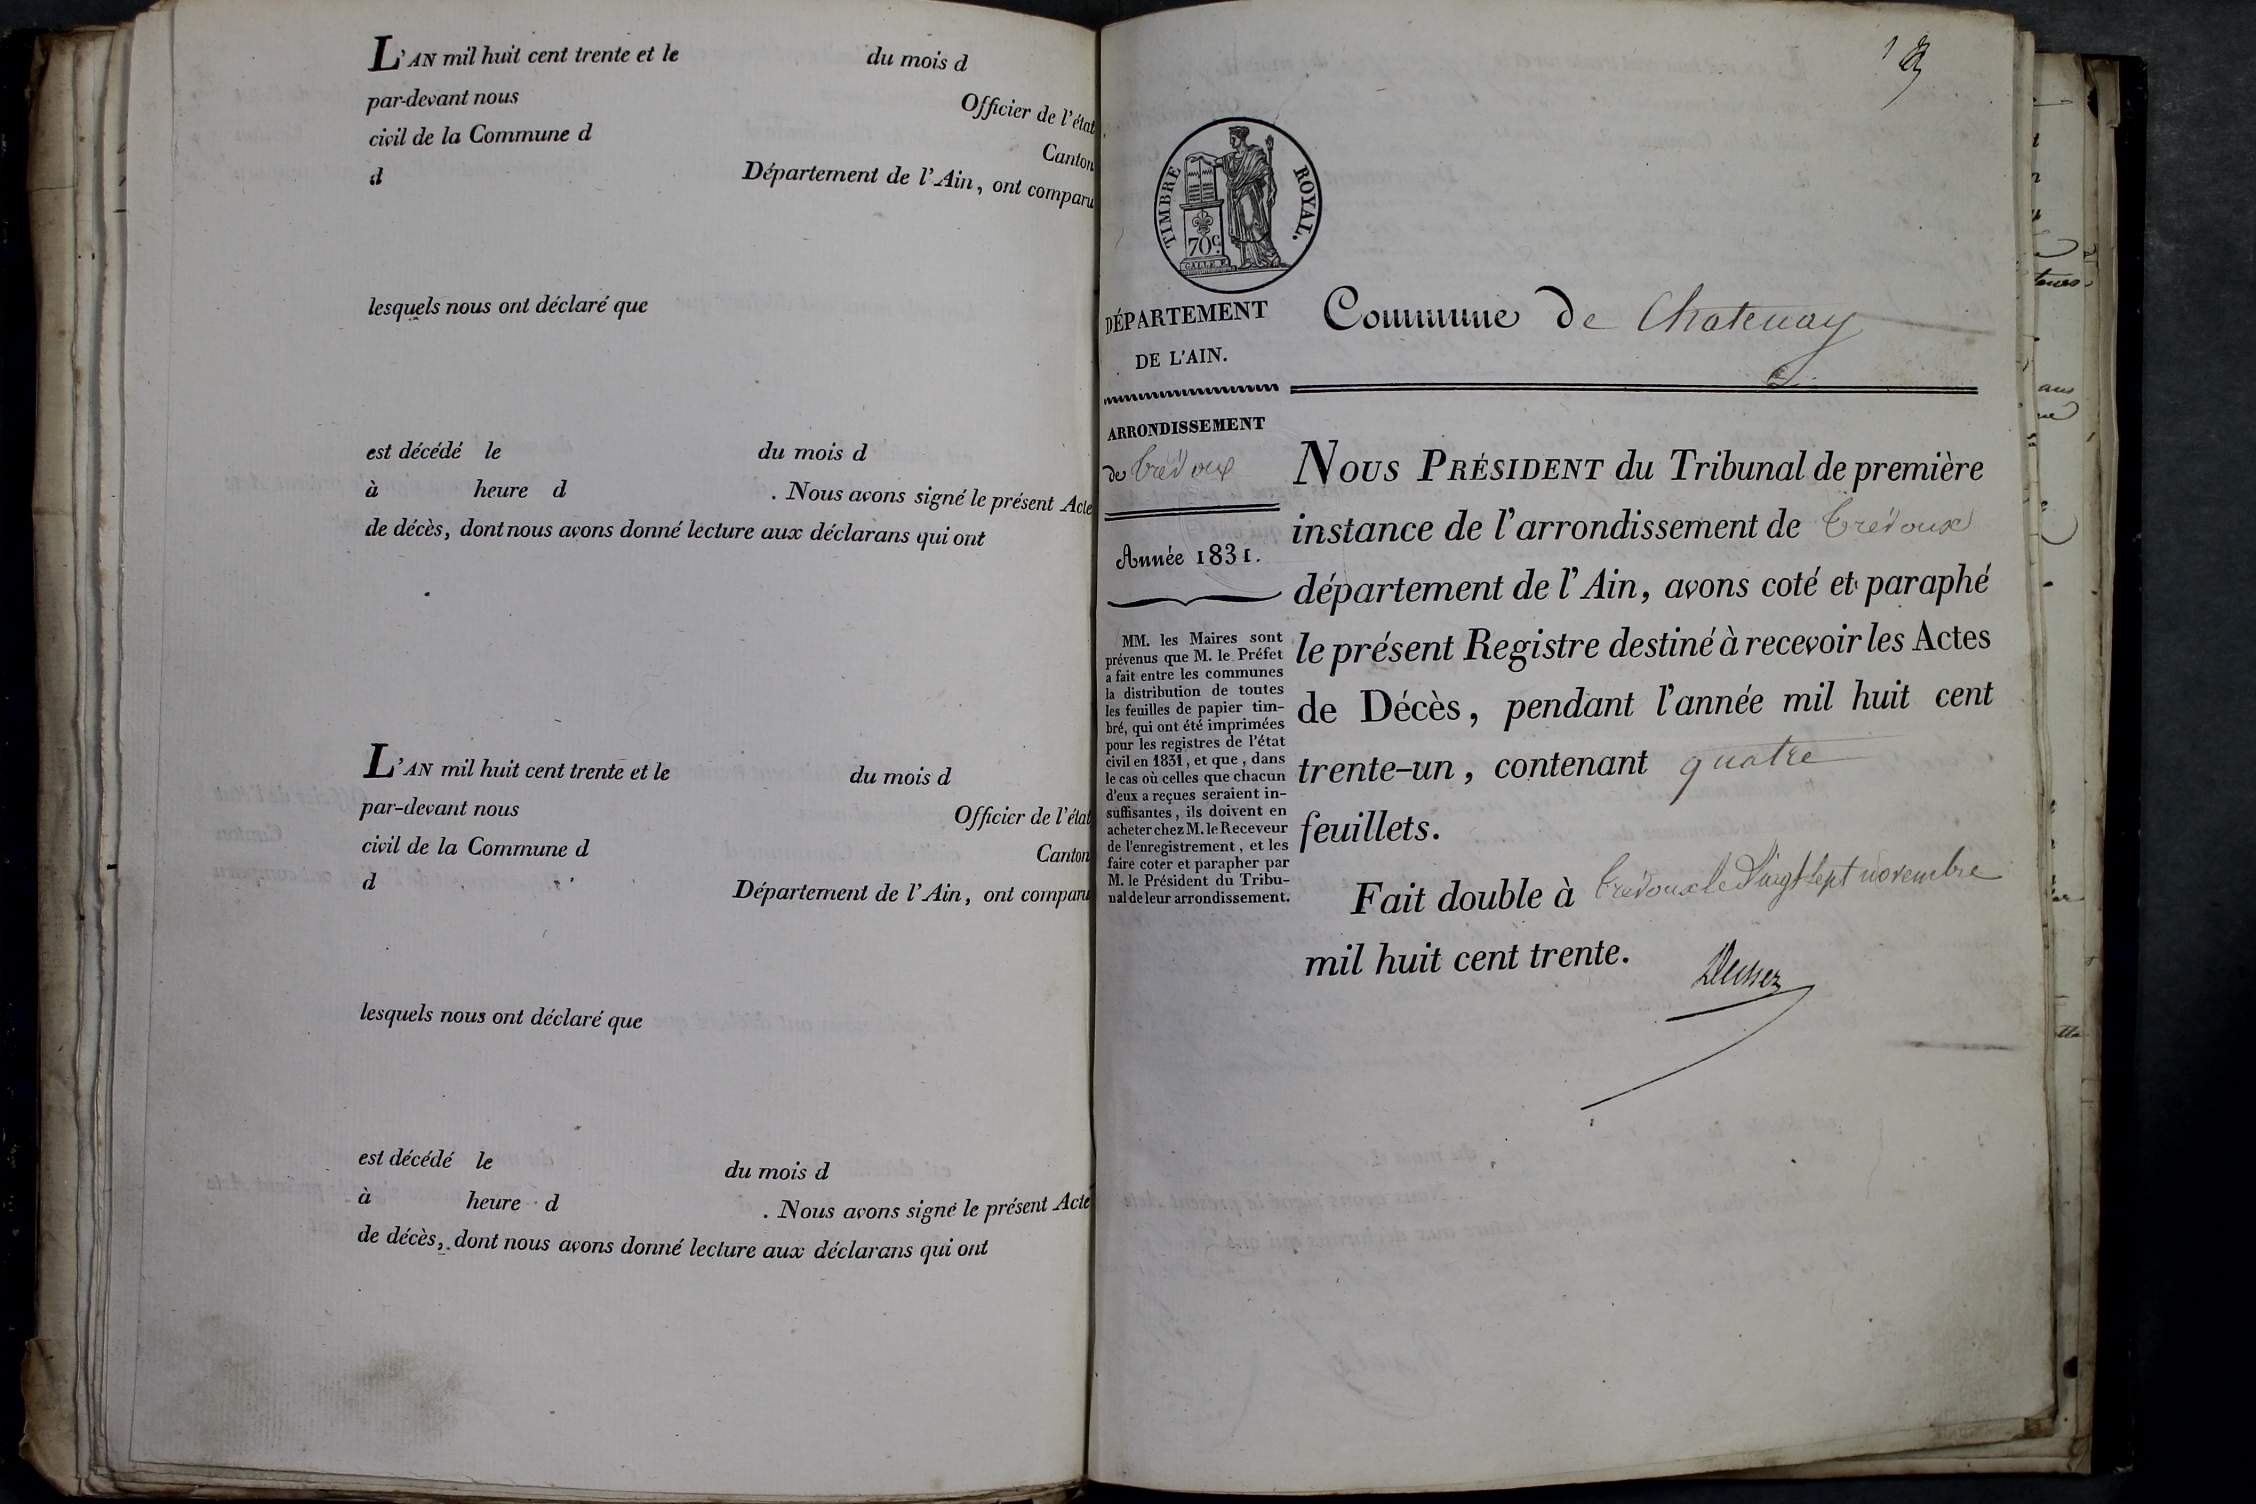 L'AN mil huit cent trente et le du mois d
par-devant nous Officier de l'état
civil de la Commune d Canton
d Département de l'Ain, ont comparu
lesquels nous ont déclaré que
est décédé le du mois d
à heure d . Nous avons signé le présent Acte
de décès, dont nous avons donné lecture aux déclarans qui ont
L'AN mil huit cent trente et le du mois d
par-devant nous Officier de l'état
civil de la Commune d Canton
d Département de l'Ain, ont comparu
lesquels nous ont déclaré que
est décédé le du mois d
à heure d . Nous avons signé le présent Acte
de décès, dont nous avons donné lecture aux déclarans qui ont
1
TIMBRE ROYAL.
70c.
DÉPARTEMENT
DE L'AIN.
ARRONDISSEMENT
de Trévoux
Année 1831.
MM. les Maires sont
prévenus que M. le Préfet
a fait entre les communes
la distribution de toutes
les feuilles de papier tim-
bré, qui ont été imprimées
pour les registres de l'état
civil en 1831, et que, dans
le cas où celles que chacun
d'eux a reçues seraient in-
suffisantes, ils doivent en
acheter chez M. le Receveur
de l'enregistrement, et les
faire coter et parapher par
M. le Président du Tribu-
nal de leur arrondissement.
Commune de Chatenay
NOUS PRÉSIDENT du Tribunal de première
instance de l'arrondissement de Trévoux
département de l'Ain, avons coté et paraphé
le présent Registre destiné à recevoir les Actes
de Décès, pendant l'année mil huit cent
trente-un, contenant quatre
feuillets.
Fait double à Trévoux le Vingt Sept novembre
mil huit cent trente.